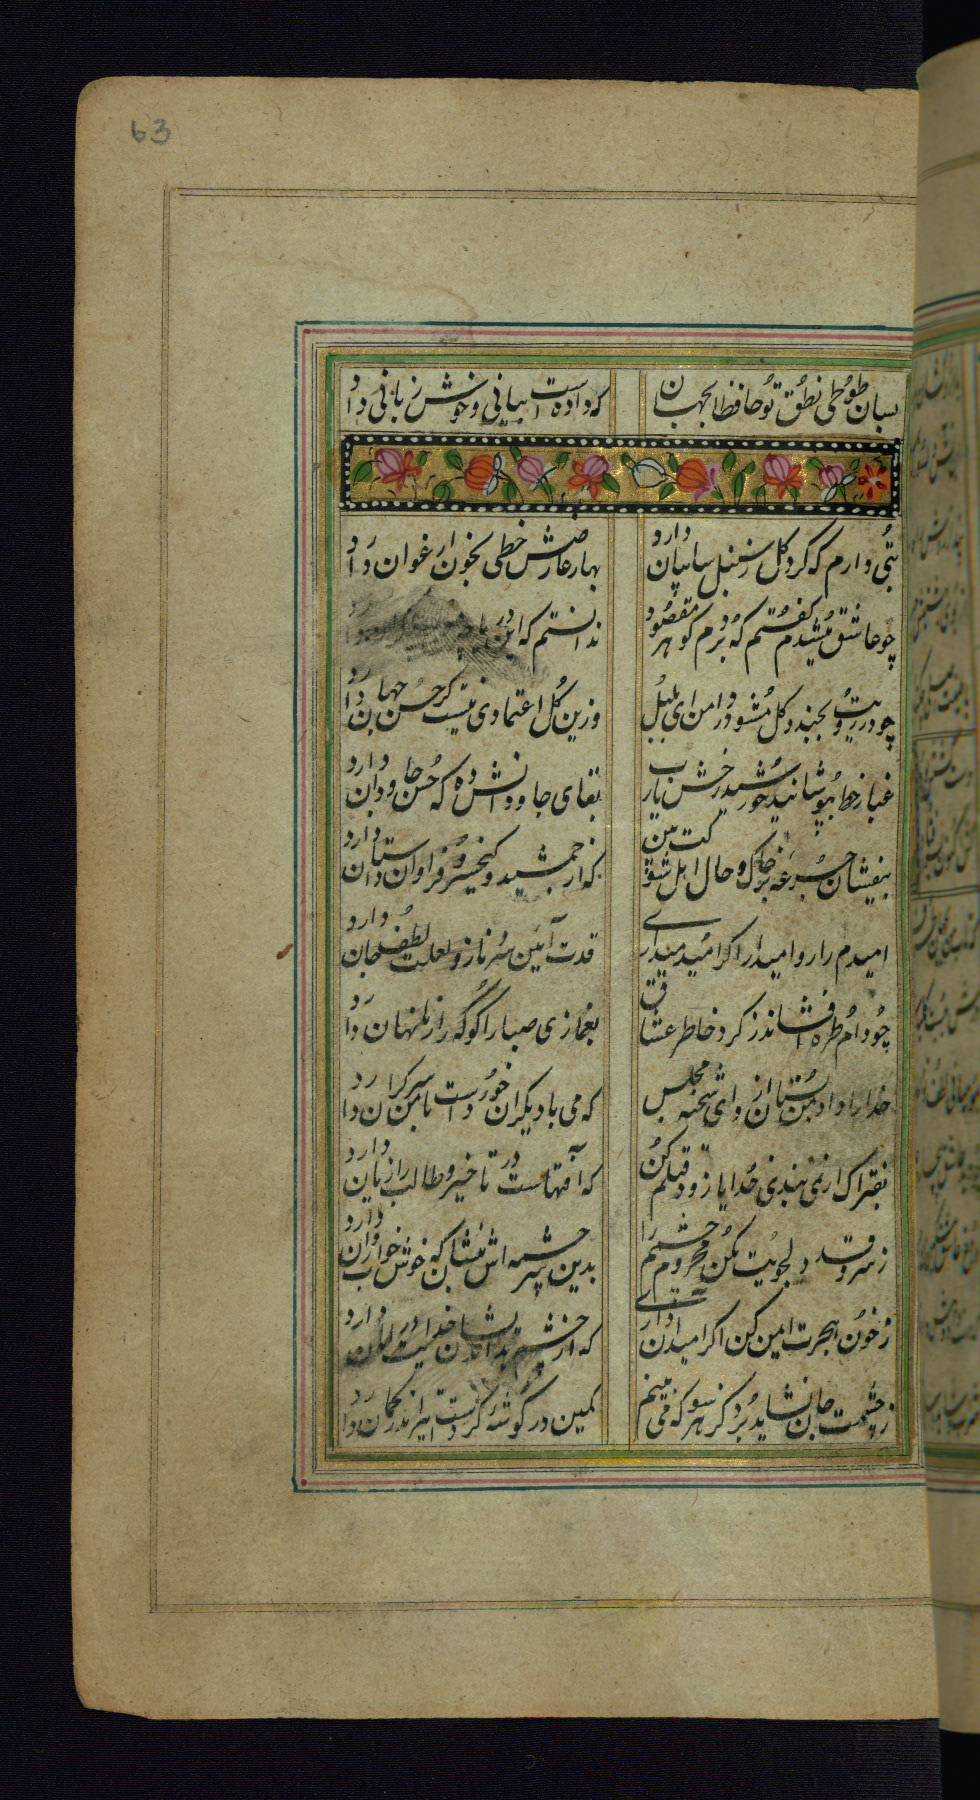 63
بسان طوطی نطق تو حافظ الجهان
که داده است بیانی و خوش زبانی دارد
بتی دارم که گرد گل ز سنبل سایبان دارد
بهار عارضش خطی بخون ارغوان دارد
چو عاشق میشدم گفتم که بردم گوهر مقصود
ندانستم که این دریا
چو در رویت بخندد گل مشو در دامن ای بلبل
وزین گل اعتمادی نیست گر حسن جهان دارد
غبار خط بپوشانید خورشید رخش یارب
بقای جاودانش ده که حسن جاودان دارد
بیفشان جرعه بر خاک و حال اهل شوکت بین
که از جمشید و کیخسرو فراوان داستان دارد
امیدم را روا میدار اگر امید میداری
قدت آیین سر ناز و لعلت لطف جان دارد
چو دام طره افشاند ز گرد خاطر عشاق
بغمازی صبا را گو که راز ما نهان دارد
خدا را داد من بستان از و ای شحنه مجلس
که می با دیگران خورد است با من سر گران دارد
بفتراک ار نمی بندی خدایا زود قیدم کن
که آفتهاست در تاخیر و طالب را زیان دارد
ز سرو قد دلجویت مکن محروم چشمم را
بدین سرچشمه اش بنشان که خوش آب روان دارد
ز خون هجرت ایمن کن اگر امید آن داری
که از چشم بد اندیشان خدایت در امان دارد
ز چشمت جان نشاید برد کز هر سو که می بینم
کمین در گوشه کردست تیر اندر کمان دارد